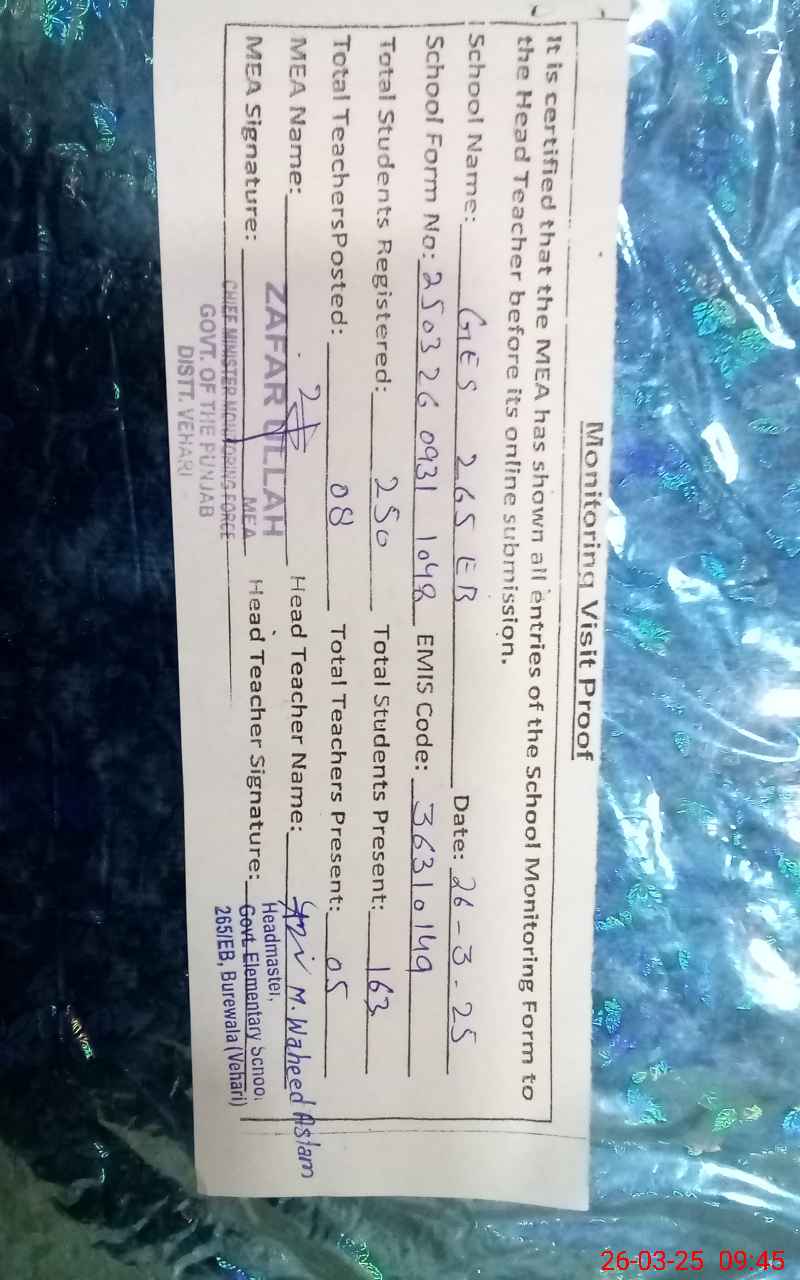 Monitoring Visit Proof
It is certified that the MEA has shown all entries of the School Monitoring Form to
the Head Teacher before its online submission.
School Name: GES 265 EB Date: 26-3-25
School Form No: 250326 0931 1048 EMIS Code: 36310149
Total Students Registered: 250 Total Students Present: 163
Total TeachersPosted: 08 Total Teachers Present: 05
MEA Name: Head Teacher Name: M. Waheed Aslam
ZAFAR ULLAH
MEA
MEA Signature: Head Teacher Signature:
CHIEF MINISTER MONITORING FORCE
GOVT. OF THE PUNJAB
DISTT. VEHARI
Headmaster,
Govt. Elementary School
265/EB, Burewala (Vehari)
26-03-25 09:45